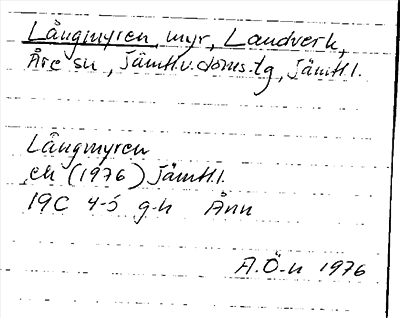 Långmyren, myr, Landverk,
Åre sn, Jämtl.v.doms.tg, Jämtl.l.
Långmyren
ek (1976) Jämtl.l.
19C 4-5 g-h Ånn
A.Ö-n 1976